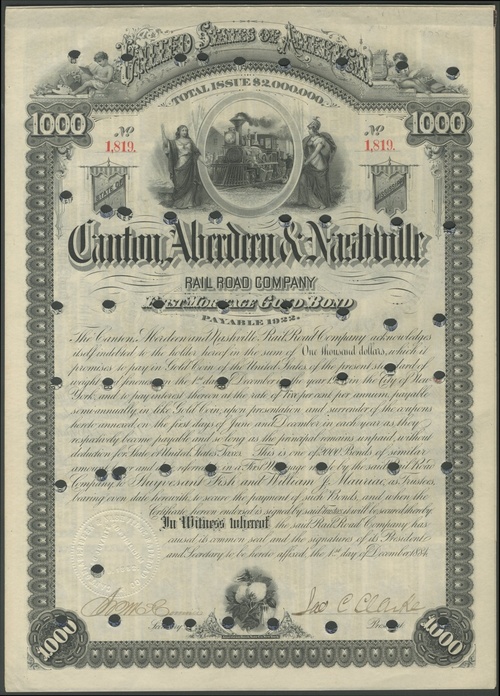 United States of America
TOTAL ISSUE $2,000,000.
1000
1000
No
1,819.
No
1,819.
STATE OF
Canton, Aberdeen & Nashville
RAIL ROAD COMPANY
FIRST MORTGAGE GOLD BOND
PAYABLE 1922.
The Canton, Aberdeen and Nashville Rail Road Company acknowledges
itself indebted to the holder hereof in the sum of One thousand dollars, which it
promises to pay in Gold Coin of the United States of the present standard of
weight and fineness on the 1st day of December in the year 1922 in the City of New
York, and to pay interest thereon at the rate of five per cent per annum, payable
semi annually, in like Gold Coin, upon presentation and surrender of the coupons
hereto annexed on the first days of June and December in each year as they
respectively become payable and so long as the principal remains unpaid, without
deduction for State or United States Taxes. This is one of 2000 Bonds of similar
amount and referred in a First Mortgage by the said Rail Road
Company to Stuyvesant Fish and William J. Mauriac, as Trustees,
bearing even date herewith, to secure the payment of such Bonds, and when the
Certificate hereon endorsed is signed by said trustees shall be secured thereby.
In Witness whereof the said Rail Road Company has
caused its common seal and the signatures of its President
and Secretary to be hereto affixed, the 1st day of December, 188
Jas C Clarke
Secretary
President
1000
1000